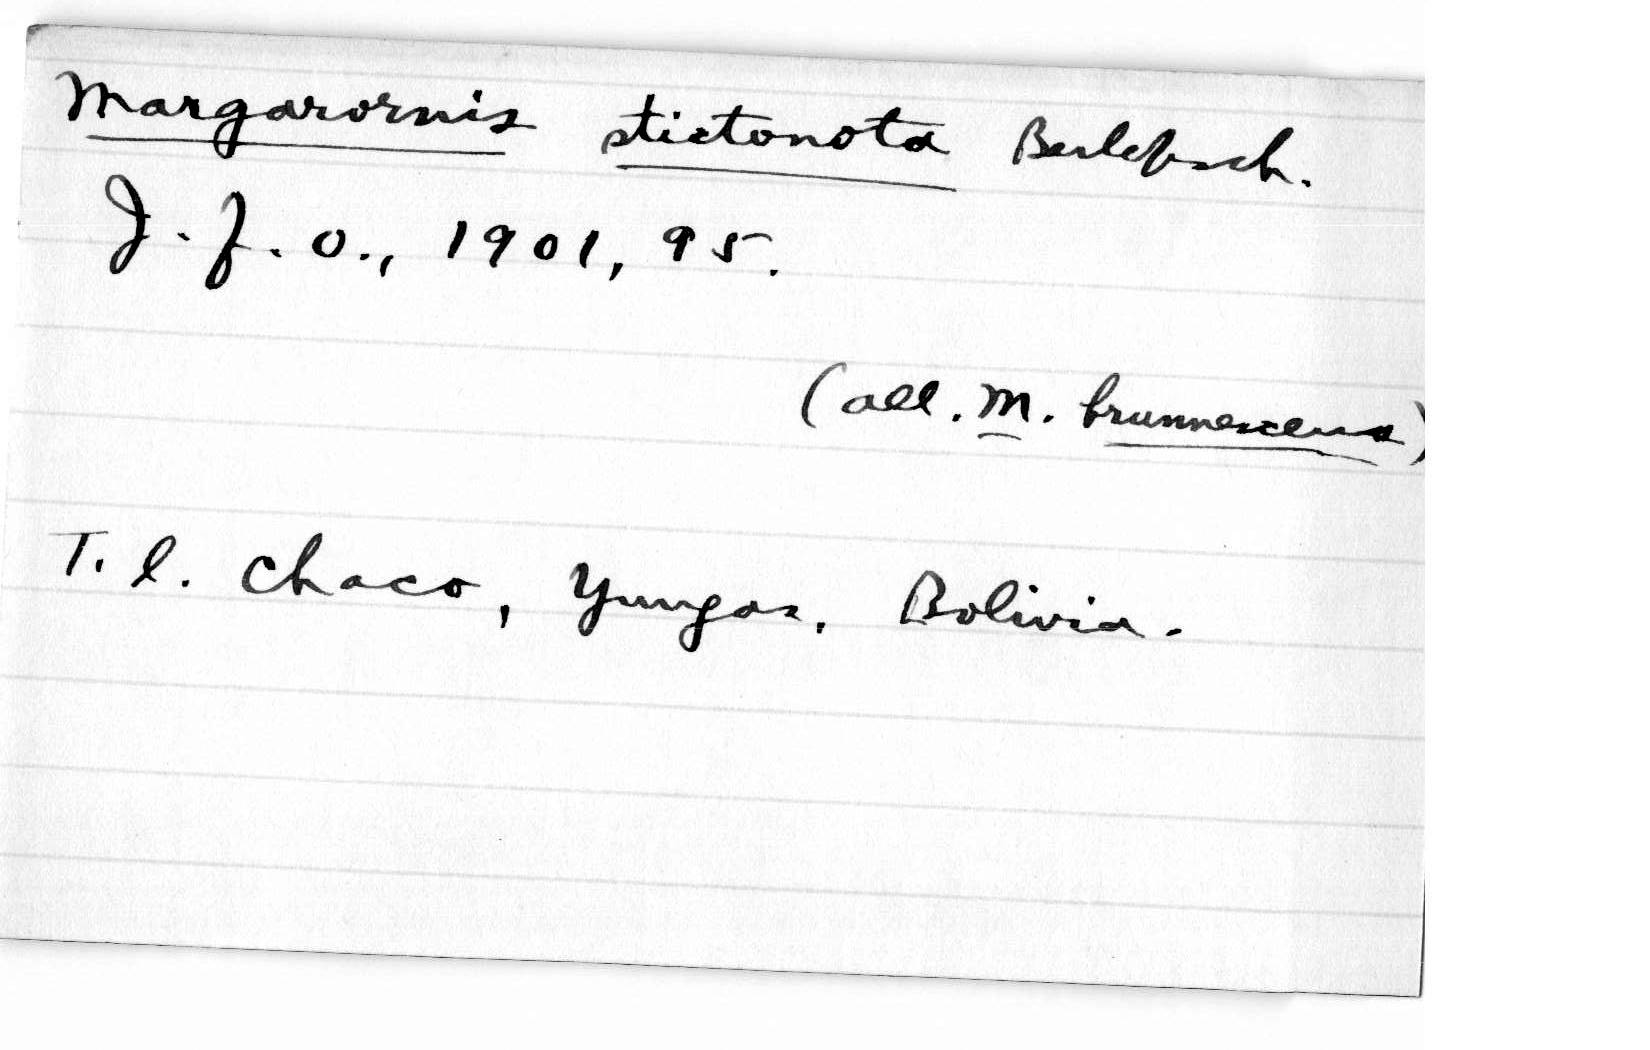 Margarornis stictonota Berlepsch.
J. f. O., 1901, 95.
(all. M. brunnescens)
T. l. Chaco, Yungas, Bolivia.